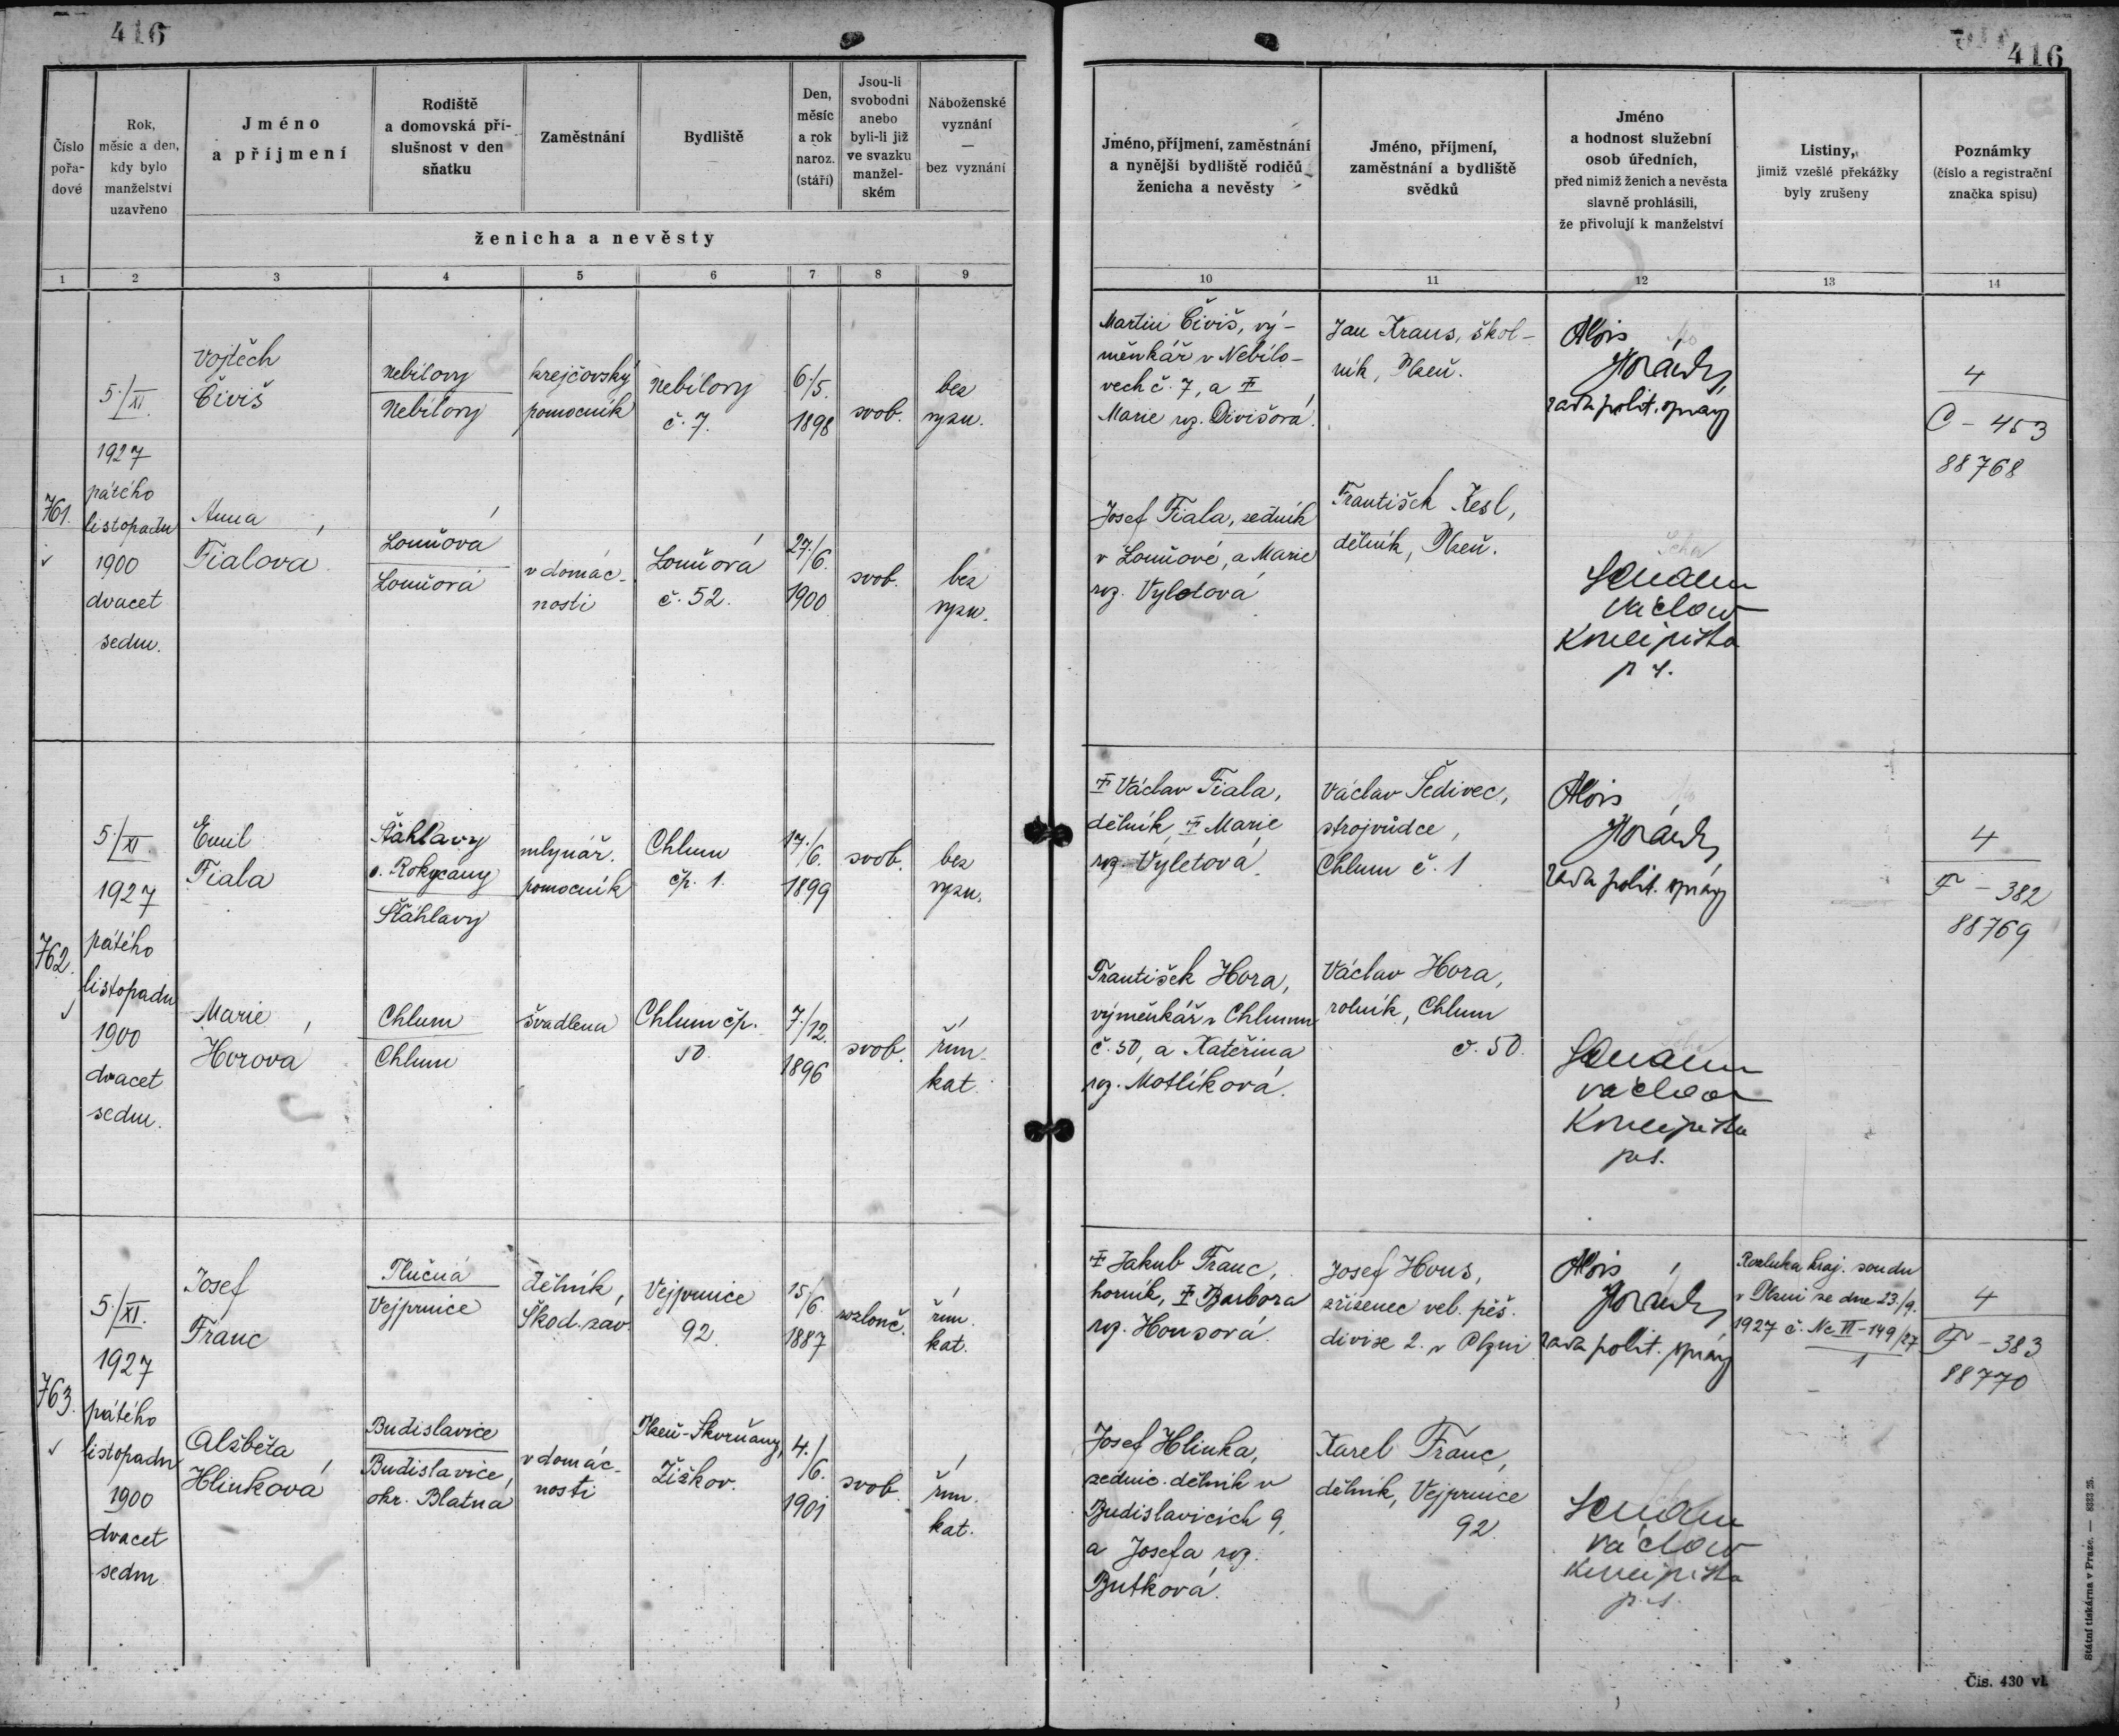 416
416
Číslo pořa-dové
Rok, měsíc a den, kdy bylo manželství uzavřeno
Jméno a příjmení
Rodiště a domovská pří-slušnost v den sňatku
Zaměstnání
Bydliště
Den, měsíc a rok naroz. (stáří)
Jsou-li svobodni anebo byli-li již ve svazku manžel-ském
Náboženské vyznání — bez vyznání
ženicha a nevěsty
Jméno, příjmení, zaměstnání a nynější bydliště rodičů ženicha a nevěsty
Jméno, příjmení, zaměstnání a bydliště svědků
Jméno a hodnost služební osob úředních, před nimiž ženich a nevěsta slavně prohlásili, že přivolují k manželství
Listiny, jimiž vzešlé překážky byly zrušeny
Poznámky (číslo a registrační značka spisu)
1 2 3 4 5 6 7 8 9 10 11 12 13 14
761.
5./XI.
1927
pátého
listopadu
1900
dvacet
sedm.
Vojtěch
Čiviš
Nebílovy
Nebílovy
krejčovský
pomocník
Nebílovy
č. 7.
6./5.
1898
svob.
bez
vyzn.
Martin Čiviš, vý-
měnkář v Nebílo-
vech č. 7, a
Marie roz. Divišová.
Jan Kraus, škol-
ník, Plzeň.
Alois
rada polit. správy
4
C - 453
88768
Anna
Fialová
Louňová
Louňová
v domác-
nosti
Louňová
č. 52.
27./6.
1900
svob.
bez
vyzn.
Josef Fiala, zedník
v Louňové, a Marie
roz. Vyletová
František Kesl,
dělník, Plzeň.
Václav
Koncipista
p. s.
762.
5./XI
1927
pátého
listopadu
1900
dvacet
sedm.
Emil
Fiala
Šťáhlavy
o. Rokycany
Šťáhlavy
mlynář.
pomocník
Chlum
čp. 1.
17./6.
1899
svob.
bez
vyzn.
Václav Fiala,
dělník, Marie
roz. Výletová.
Václav Šedivec,
strojvůdce,
Chlum č. 1
Alois
rada polit. správy
4
F - 382
88769
Marie
Horová
Chlum
Chlum
švadlena
Chlum čp.
50.
7./12.
1896
svob.
řím.
kat.
František Hora,
výměnkář v Chlumu
č. 50, a Kateřina
roz. Motlíková.
Václav Hora,
rolník, Chlum
č. 50.
Václav
Koncipista
p. s.
763.
5./XI.
1927
pátého
listopadu
1900
dvacet
sedm
Josef
Franc
Tlučná
Vejprnice
dělník,
Škod. záv.
Vejprnice
92.
15./6.
1887
rozlouč.
řím.
kat.
Jakub Franc,
horník, Barbora
roz. Housová.
Josef Hous,
zřízenec vel. pěš.
divize 2. v Plzni
Alois
rada polit. správy
Rozluka kraj. soudu
v Plzni ze dne 23./9.
1927 č. Nc VI - 149/27
1
4
F - 383
88770
Alžběta
Hlinková
Budislavice
Budislavice,
okr. Blatná
v domác-
nosti
Plzeň-Skvrňany,
Žižkov.
4./6.
1901
svob.
řím.
kat.
Josef Hlinka,
zednic. dělník v
Budislavicích 9,
a Josefa roz.
Butková.
Karel Franc,
dělník, Vejprnice
92.
Václav
Koncipista
p. s.
Státní tiskárna v Praze. — 8333 25.
Čís. 430 vl.